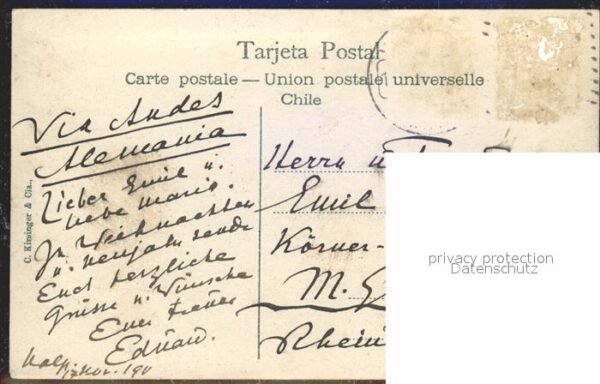 Tarjeta Postal
Carte postale — Union postale universelle
Chile
C. Kirsinger & Cia.,
Via Andes
Alemania
Lieber Emil u.
liebe Maria.
Zu Weihnachten
u. Neujahr sende
Euch herzliche
Grüsse u. Wünsche
Euer treuer
Eduard.
Nov. 190
Herrn u.
Emil
Körner-
M. G
Rhein
privacy protection
Datenschutz